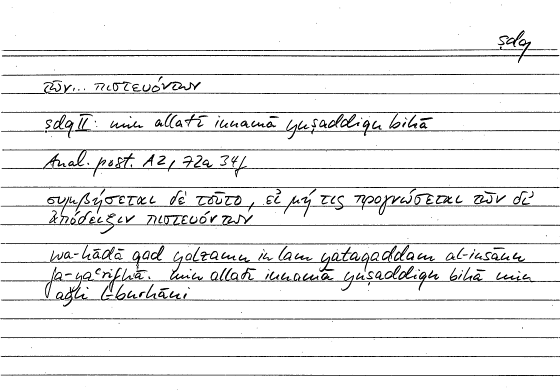 ṣdq
τῶν... πιστευόντων
ṣdq II: min allatī innamā yuṣaddiqu bihā
Anal. post. A2, 72a 34f
συμβήσεται δὲ τοῦτο, εἰ μή τις προγνώσεται τῶν δι'
ἀπόδειξιν πιστευόντων
wa-hāḏā qad yalzamu in lam yataqaddam al-insānu
fa-yaʿrifhā. min allatī innamā yuṣaddiqu bihā min
aǧli l-burhāni